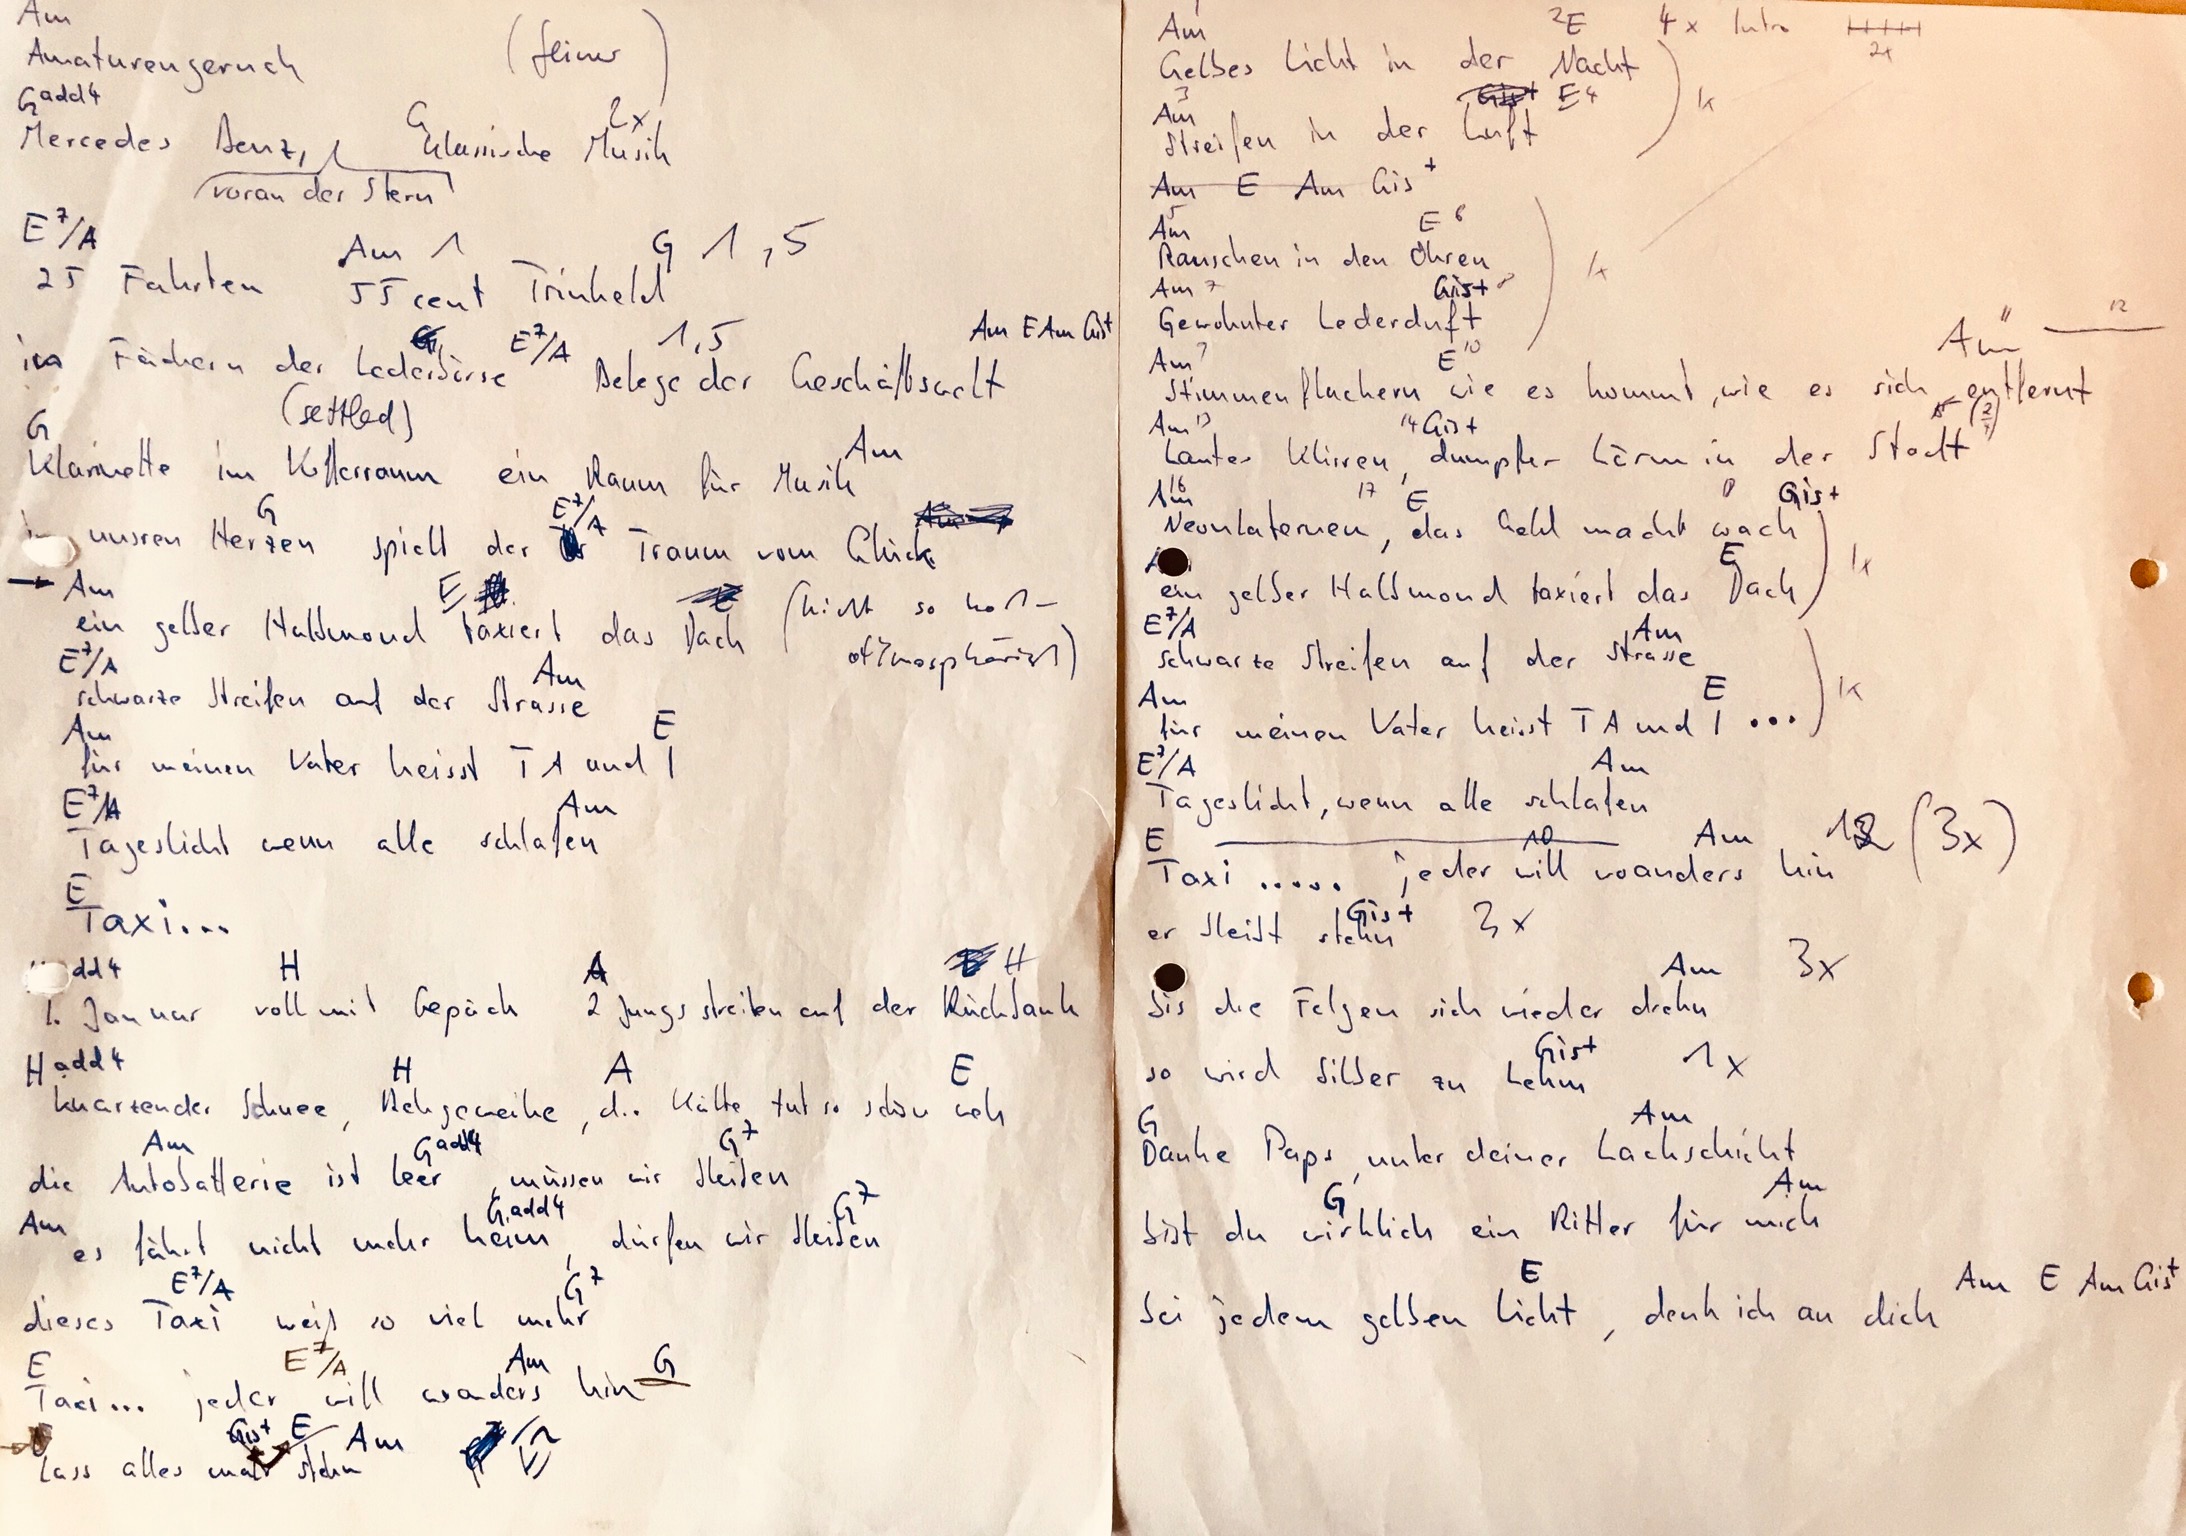 Am
Amaturengeruch (feiner)
Gadd4 G 2x
Mercedes Benz, klassische Musik
voran der Stern
E7/A Am 1 G 1,5
25 Fahrten 55 cent Trinkeld
E7/A 1,5 Am E Am Gis+
in Fächern der Lederbörse Belege der Geschäftswelt
(settled)
G Am
Klarinette im Kofferraum ein Raum für Musik
G E7/A
unsren Herzen spielt der Traum vom Glück
→ Am E
ein gelber Halbmond taxiert das Dach (nicht so hart-
atmosphärisch)
E7/A Am
schwarze Streifen auf der Strasse
Am E
für meinen Vater heisst TA und I
E7/A Am
Tageslicht wenn alle schlafen
E
Taxi...
dd4 H A H
1. Januar voll mit Gepäck 2 Jungs streiten auf der Rückbank
Hadd4 H A E
knarzender Schnee, Rehgeweihe, die Kälte tut so schön weh
Am Gadd4 G7
die Autobatterie ist leer, müssen wir bleiben
Am Gadd4 G7
es fährt nicht mehr heim, dürfen wir bleiben
E7/A G7
dieses Taxi weiß so viel mehr
E E7/A Am G
Taxi... jeder will woanders hin
Gis+ E Am
Lass alles mal stehn
Am 2E 4x Intro
2x
Gelbes Licht in der Nacht
3 Am E4 1x
Streifen in der Luft
Am E Am Gis+
5 Am E6
Rauschen in den Ohren 1x
Am7 Gis+ 8
Gewohnter Lederduft
Am9 E10 Am11 12
Stimmenflackern wie es kommt, wie es sich entfernt
Am13 14 Gis+ 15
Lautes Klirren, dumpfer Lärm in der Stadt
16 Am 17 E Gis+
Neonlaternen, das Geld macht wach
E 1x
ein gelber Halbmond taxiert das Dach
E7/A Am
schwarze Streifen auf der Strasse
Am E 1x
für meinen Vater heisst TA und I ...
E7/A Am
Tageslicht, wenn alle schlafen
E 10 Am 12 (3x)
Taxi ..... jeder will woanders hin
Gis+ 3x
er bleibt stehn
Am 3x
bis die Felgen sich wieder drehn
Gis+ 1x
so wird Silber zu Lehm
G Am
Danke Paps, unter deiner Lackschicht
G Am
bist du wirklich ein Ritter für mich
E Am E Am Gis+
bei jedem gelben Licht, denk ich an dich